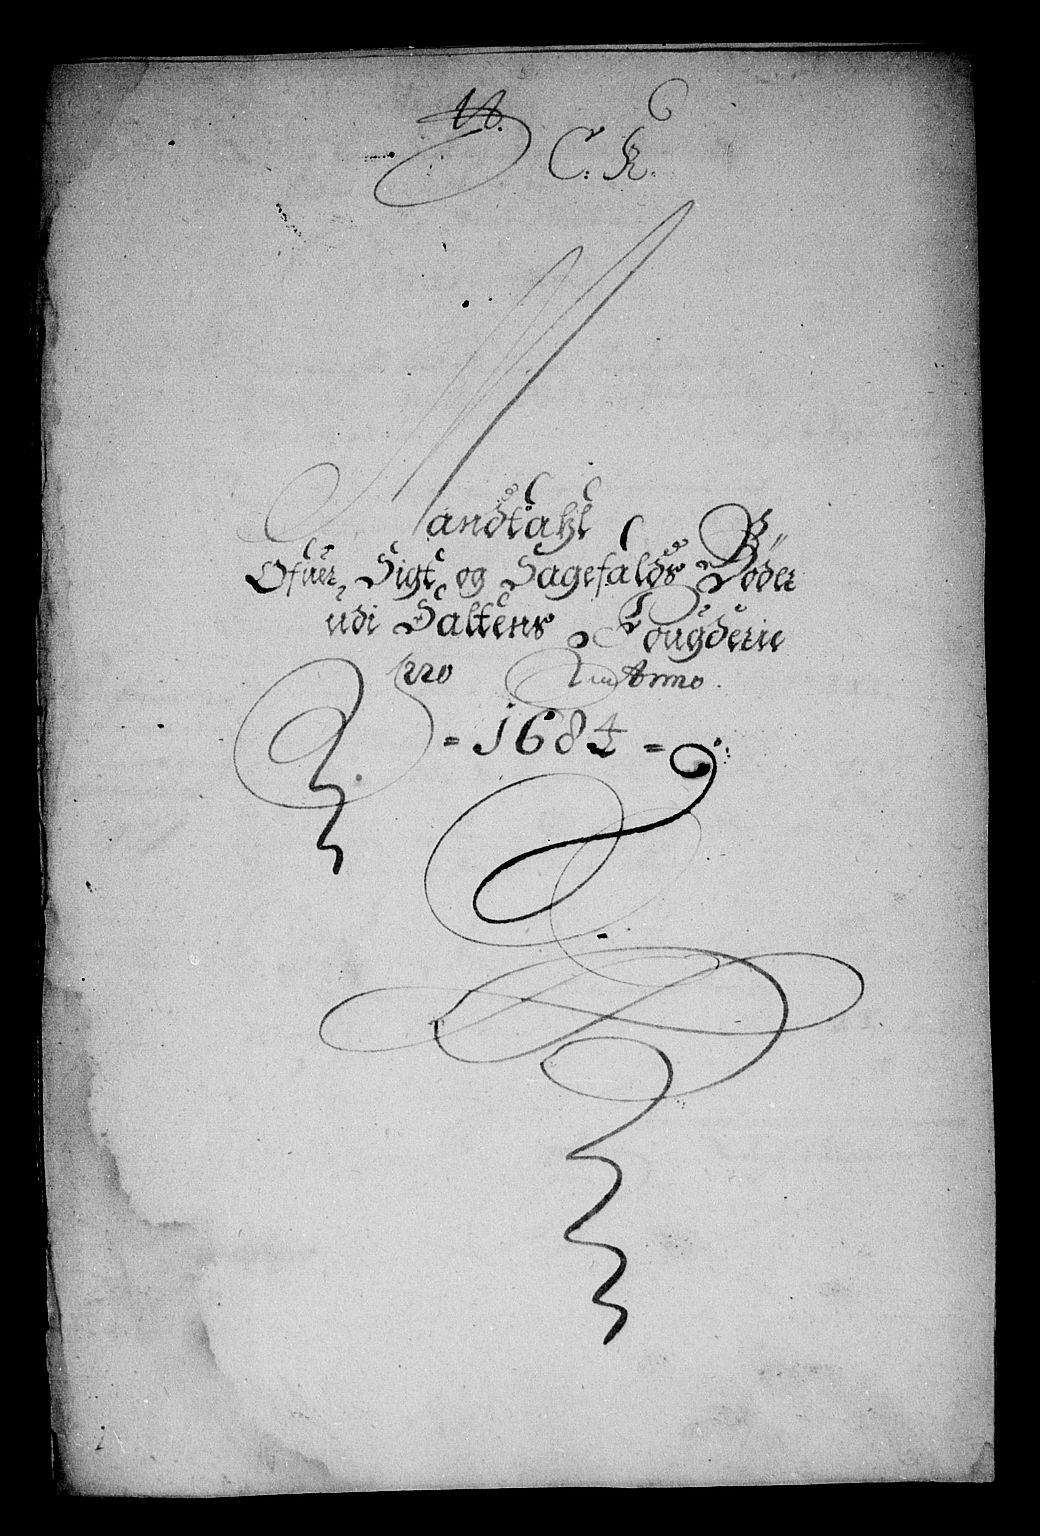 C. K.
Mandtahl
Ofuer Sigt og Sagefalds Bøder
udi Saltens Fougderie
pro Anno
= 1684 =